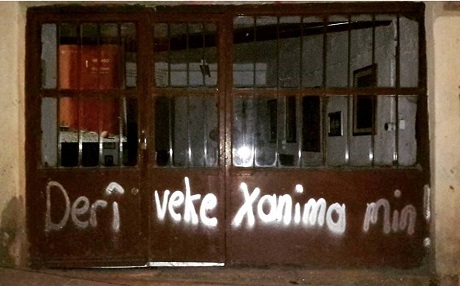 Derî veke Xanima min!